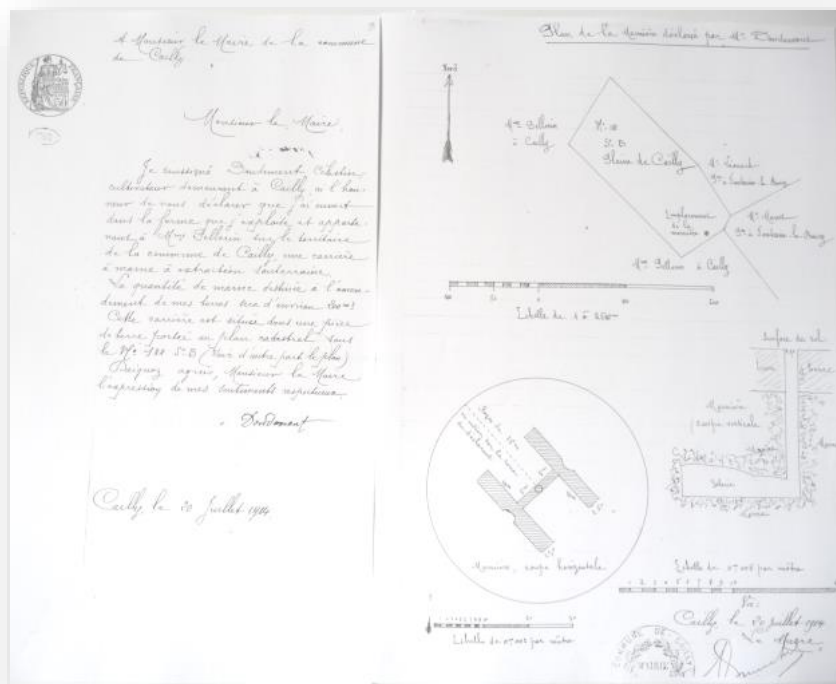 A Monsieur le Maire de la commune
de Cailly
RÉPUBLIQUE FRANÇAISE
Monsieur le Maire,
Je soussigné Doudement Célestin
cultivateur demeurant à Cailly, ai l'hon-
neur de vous déclarer que j'ai ouvert
dans la ferme que j'exploite et apparte-
nant à Mme Pellerin sur le territoire
de la commune de Cailly une carrière
à marne à extraction souterraine.
La quantité de marne destinée à l'amen-
dement de mes terres sera d'environ
Cette carrière est située dans une pièce
de terre portée au plan cadastral sous
le No 188 Son B (Voir d'autre part le plan)
Daignez agréer, Monsieur le Maire
l'expression de mes sentiments respectueux
Doudement
Cailly, le 20 Juillet 1904
Plan de la Marnière déclarée par Mr Doudement
Nord
Mme Pellerin
à Cailly
Son B
Plaine de Cailly
Emplacement
de la
marnière
Mme Pellerin à Cailly
Echelle de 1 à 2500
Surface du sol
Terre
Marnière
coupe verticale
Marne
Galerie
Marnière, coupe horizontale
Echelle de 0m005 par mètre
Echelle de 0m005 par mètre
Vu:
Cailly, le 20 juillet 1904
Le Maire
COMMUNE DE CAILLY